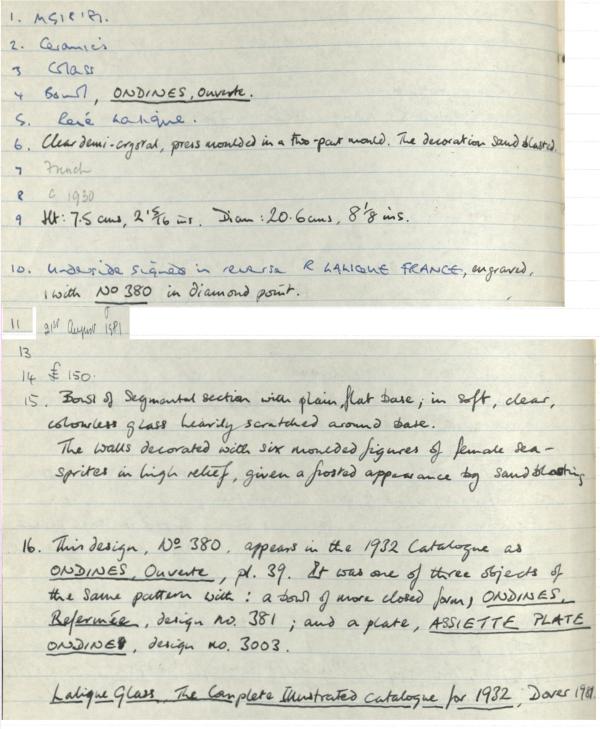 1. MG1R'81.
2. Ceramics
3 Glass
4 Bowl, ONDINES, Ouverte.
5. René Lalique.
6. Clear demi-crystal, press moulded in a two-part mould. The decoration sand blasted.
7 French
8 c 1930
9 Ht: 7.5 cms, 2 15/16 ins. Diam: 20.6 cms, 8 1/8 ins.
10. Underside signed in reverse R LALIQUE FRANCE, engraved,
with Nº 380 in diamond point.
11 21st August 1981
13
14 £150.
15. Bowl of segmental section with plain, flat base; in soft, clear,
colourless glass heavily scratched around base.
The walls decorated with six moulded figures of female sea-
sprites in high relief, given a frosted appearance by sand blasting
16. This design, Nº 380, appears in the 1932 Catalogue as
ONDINES, Ouverte, pl. 39. It was one of three objects of
the same pattern with: a bowl of more closed form, ONDINES,
Refermée, design no. 381; and a plate, ASSIETTE PLATE
ONDINES, design no. 3003.
Lalique Glass, The Complete Illustrated Catalogue for 1932, Dover 1981